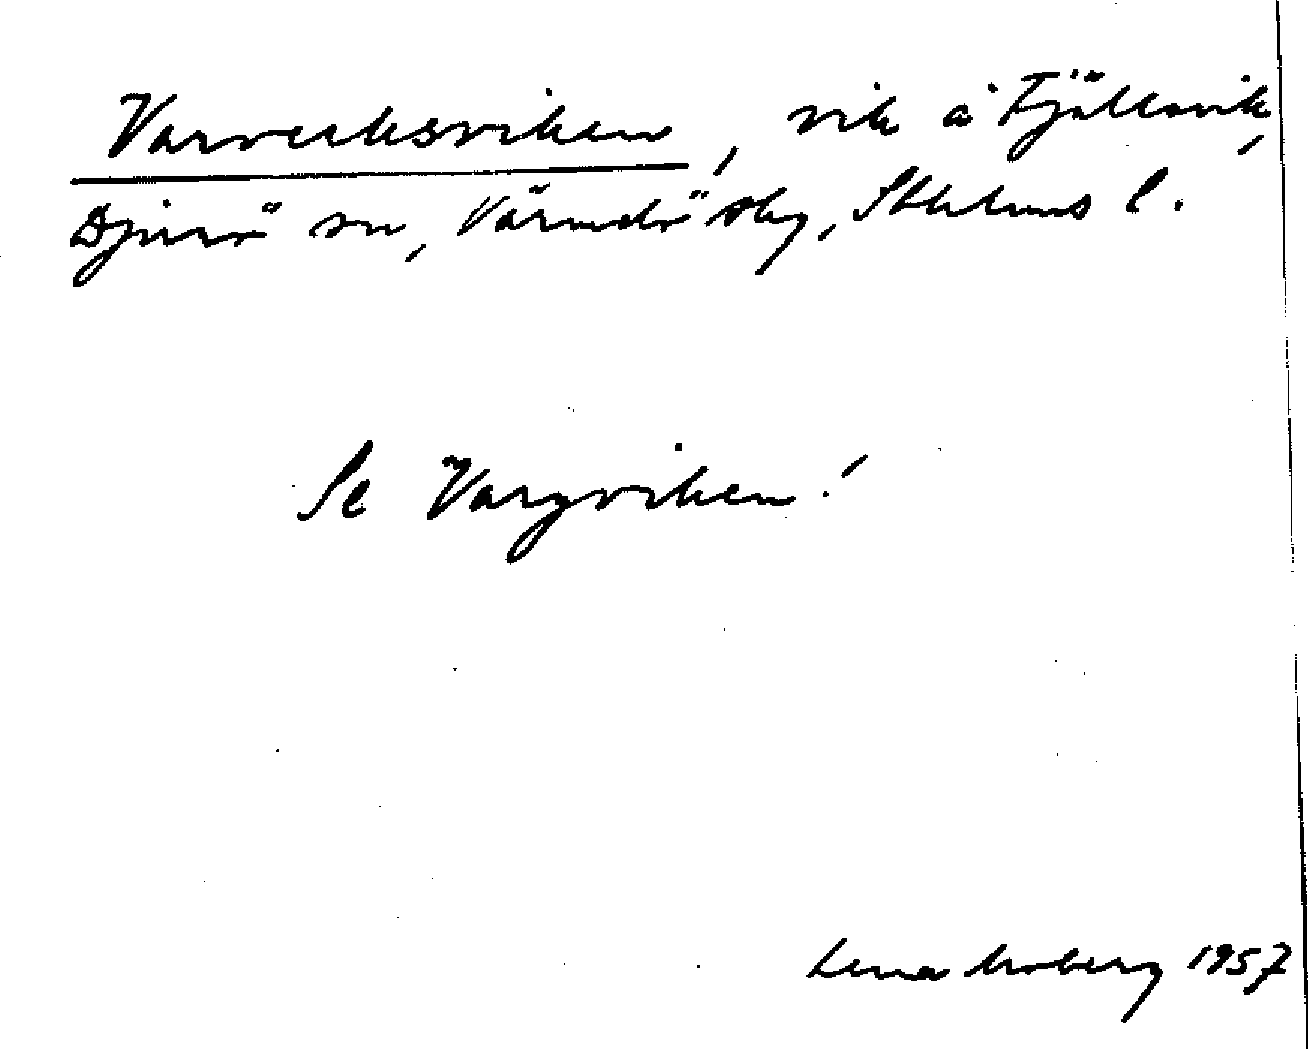 Varverksviken, vik å Fjällsvik,
Djurö sn, Värmdö skg, Sthlms l.
Se Vargviken!
Lena Moberg 1957